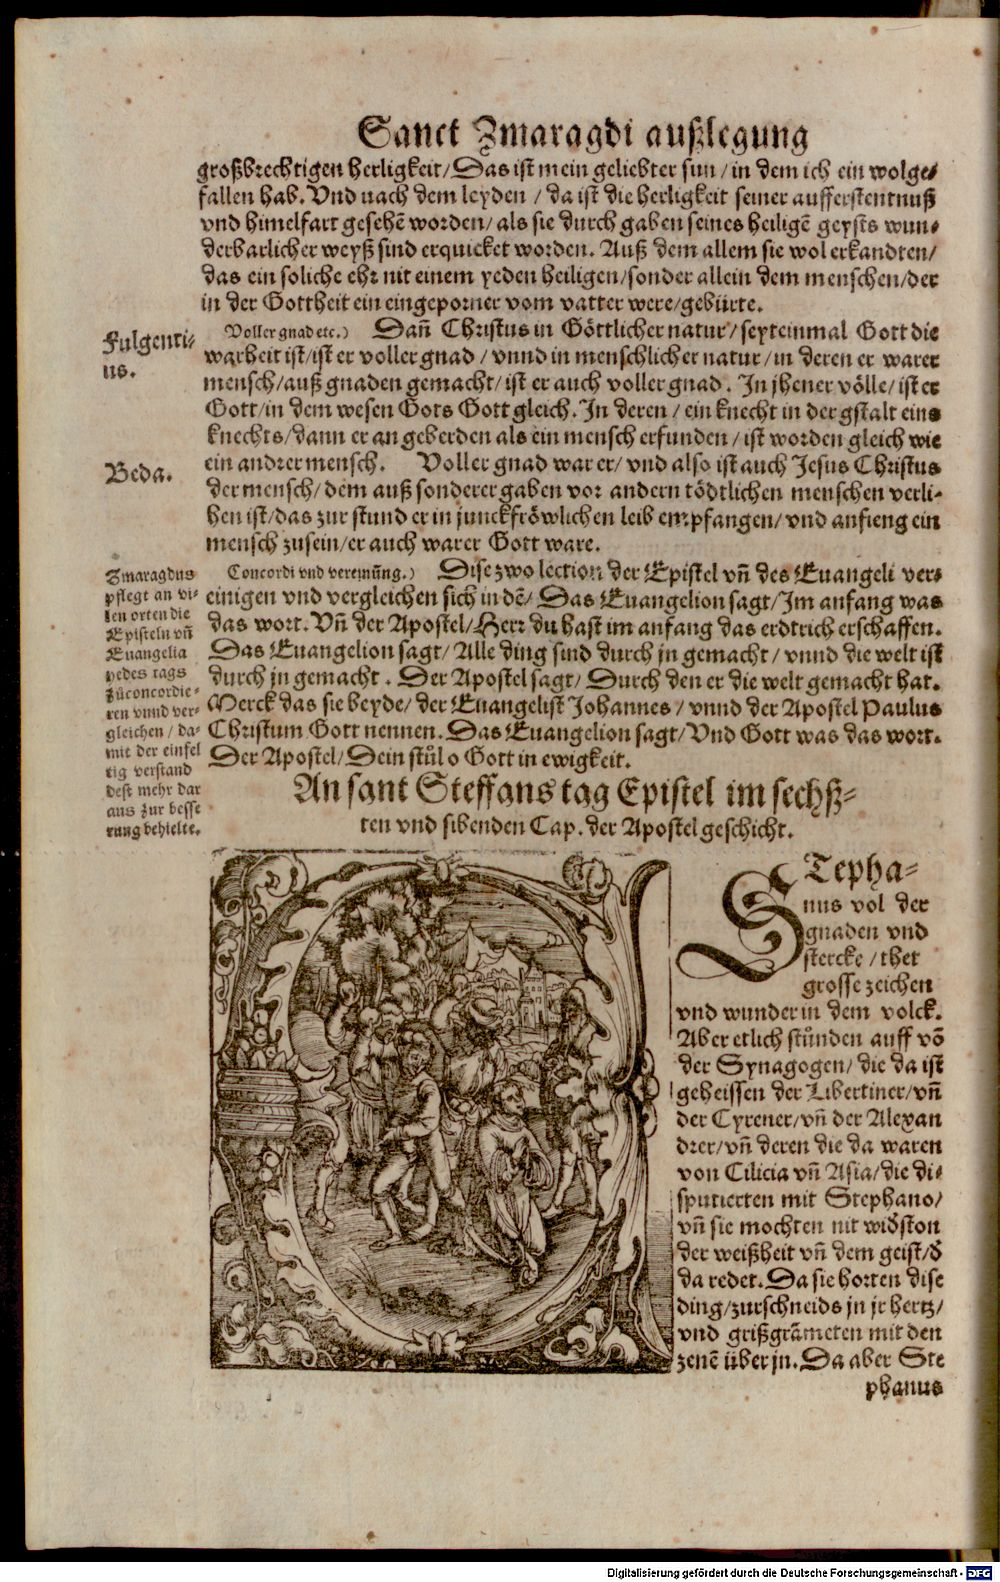 Sanct Zmaragdi außlegung
großbrechtigen herligkeit/ Das ist mein geliebter sun/ in dem ich ein wolge-
fallen hab. Vnd nach dem leyden / da ist die herligkeit seiner aufferstentnuß
vnd himelfart gesehē worden/ als sie durch gaben seines heiligē geysts wun-
derbarlicher weyß sind erquicket worden. Auß dem allem sie wol erkandten/
das ein soliche ehr nit einem yeden heiligen/ sonder allein dem menschen/ der
in der Gottheit ein eingeporner vom vatter were/ gebürte.
Fulgenti-
us.
Voller gnad etc.) Dañ Christus in Göttlicher natur/ seyteinmal Gott die
warheit ist/ ist er voller gnad / vnnd in menschlicher natur/ in deren er warer
mensch/ auß gnaden gemacht/ ist er auch voller gnad. In jhener völle/ ist er
Gott/ in dem wesen Gots Gott gleich. In deren / ein knecht in der gstalt eins
knechts/ dann er an geberden als ein mensch erfunden / ist worden gleich wie
Beda.
ein andrer mensch. Voller gnad war er/ vnd also ist auch Jesus Christus
der mensch/ dem auß sonderer gaben vor andern tödtlichen menschen verli-
hen ist/ das zur stund er in junckfröwlichen leib empfangen/ vnd anfieng ein
mensch zusein/ er auch warer Gott ware.
Zmaragdus
pflegt an vi-
len orten die
Episteln vñ
Euangelia
yedes tags
zůconcordie-
ren vnnd ver-
gleichen / da-
mit der einfel
tig verstand
dest mehr dar
aus zur besse
rung behielte.
Concordi vnd vereinūng.) Dise zwo lection der Epistel vñ des Euangeli ver-
einigen vnd vergleichen sich in dē/ Das Euangelion sagt/ Im anfang was
das wort. Vñ der Apostel/ Herr du hast im anfang das erdtrich erschaffen.
Das Euangelion sagt/ Alle ding sind durch jn gemacht / vnnd die welt ist
durch jn gemacht. Der Apostel sagt/ Durch den er die welt gemacht hat.
Merck das sie beyde/ der Euangelist Johannes / vnnd der Apostel Paulus
Christum Gott nennen. Das Euangelion sagt/ Vnd Gott was das wort.
Der Apostel/ Dein stůl o Gott in ewigkeit.
An sant Steffans tag Epistel im sechß-
ten vnd sibenden Cap. der Apostel geschicht.
STepha-
nus vol der
gnaden vnd
stercke / thet
grosse zeichen
vnd wunder in dem volck.
Aber etlich stůnden auff vō
der Synagogen/ die da ist
geheissen der Libertiner/ vñ
der Cyrener/ vñ der Alexan
drer/ vñ deren die da waren
von Cilicia vñ Asia/ die di-
sputierten mit Stephano/
vñ sie mochten nit widston
der weißheit vñ dem geist/ d̄
da redet. Da sie horten dise
ding/ zurschneids jn jr hertz/
vnd grißgrāmeten mit den
zenē über jn. Da aber Ste
phanus
Digitalisierung gefördert durch die Deutsche Forschungsgemeinschaft - DFG